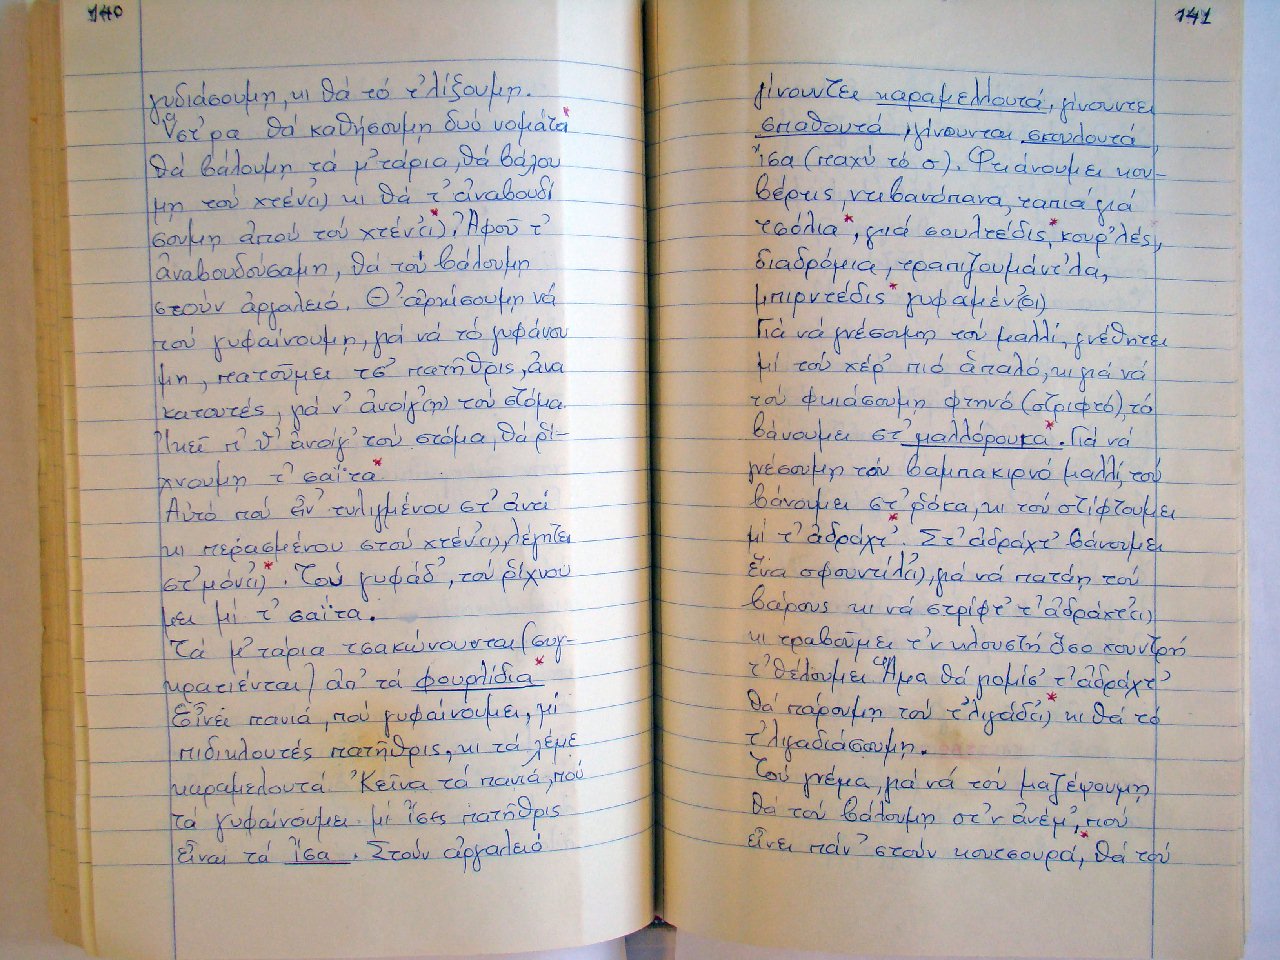 140
γυδιάσουμη, κι θά τό τ'λίξουμη.
Ύστ'ρα θά καθήσουμη δυό νομάτα*
θά βάλουμη τά μ'τάρια, θά βάλου
μη τού χτέν(ι) κι θά τ' ἀναβουδί
σουμη ἀπού τού χτέν(ι)*. Ἀφοῦ τ'
ἀναβουδούσαμη, θά τού βάλουμη
στούν ἀργαλειό. Θ' ἀρκίσουμη νά
τού γυφαίνουμη, γιά νά τό γυφάνου
μη, πατοῦμει τσ' πατῆθρις, ἀνα
κατουτές, γιά ν' ἀνοίγ(η) τού στόμα.
Ἰκεῖ τ' θ' ἀνοίγ' τού στόμα, θά ρί-
χνουμη τ' σαΐτα*
Αὐτό πού εἶν' τυλιγμένου στ' ἀντί
κι περασμένου στού χτέν(ι), λέγητει
στ'μόν(ι)*. Τού γυφάδ', τού ρίχνου
μει μί τ' σαΐτα.
Τά μ'τάρια τσακώνουνται (συγ-
κρατιένται) ἀπ' τά φουρλίδια*
Εἶνει πανιά, πού γυφαίνουμει, μί
πιδικλουτές πατῆθρις, κι τά λέμε
καραμελουτά. Ἀκεῖνα τά πανιά, πού
τά γυφαίνουμει μί ἴσες πατῆθρις
εἶναι τά ἴσα. Στούν ἀργαλειό
141
γίνουντει καραμελλουτά, γίνουντει
σπαθουτά, γίνουνται σπυλουτά,
ἴσα (παχύ τό σ). Φκιάνουμει κου-
βέρτις, ντιβανόπανα, ταπιά γιά
τσόλια*, γιά σουλτέδις*, κουρ'λές*,
διαδρόμια, τραπιζουμάντ'λα,
μπιρντέδις* γυφαμέν(οι)
Γιά νά γνέσουμη τού μαλλί, γνέθητει
μί τού χέρ' πιό ἁπαλό, κι γιά νά
τού φκιάσουμη φτηνό (στριφτό), τό
βάνουμει στ' μαλλόρουκα*. Γιά νά
γνέσουμη τού βαμπακιρνό μαλλί, τού
βάνουμει στ' ρόκα, κι τού στίφτουμει
μί τ' ἀδράχτ'*. Στ' ἀδράχτ' βάνουμει
ἕνα σφουντίλ(ι), γιά νά πατάη τού
βάρους κι νά στρίφτ' τ' ἀδράχτ(ι)
κι τραβοῦμει τ'ν κλουστή ὅσο χουντρή
τ' θέλουμει. Ἅμα θά γιομίσ' τ' ἀδράχτ'
θά πάρουμη τού τ'λιγάδ(ι)* κι θά τό
τ'λιγαδιάσουμη.
Τού γνέμα, γιά νά τού μαζέψουμη
θά τού βάλουμη στ'ν ἀνέμ', πού
εἶνει πάν' στούν κουτσουρά*, θά τού